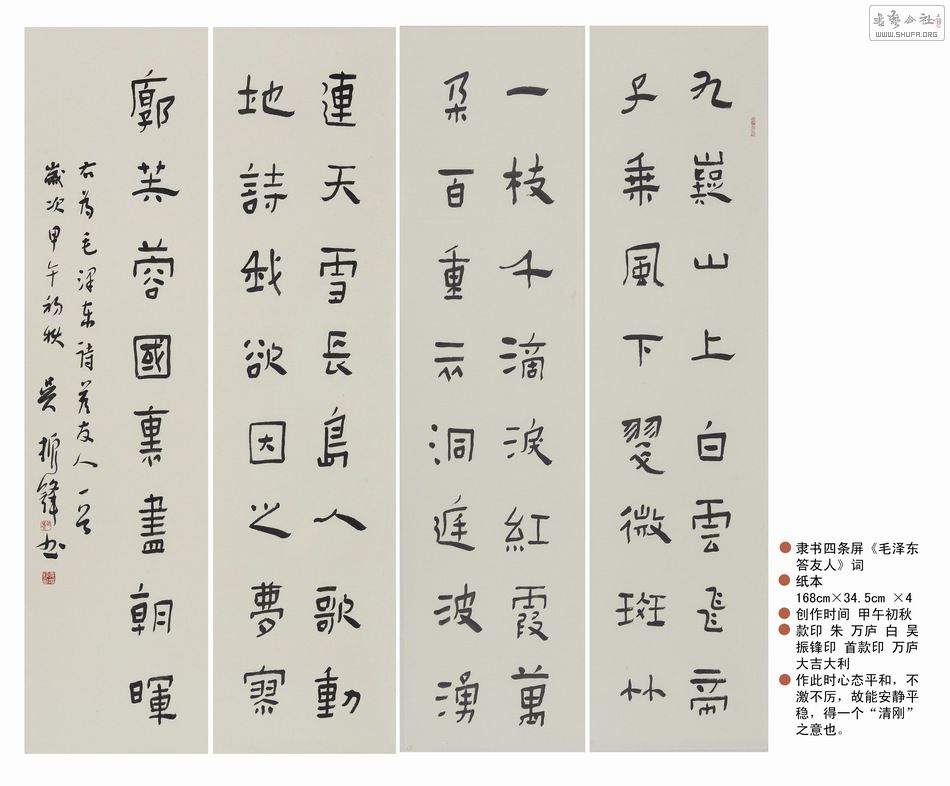 九嶷山上白雲飛帝
子乗風下翠微斑竹
一枝千滴淚紅霞萬
朵百重衣洞庭波湧
連天雪長島人歌動
地詩我欲因之夢寥
廓芙蓉國裏盡朝暉
右為毛泽东诗答友人一首
歲次甲午初秋 吴振鋒书
书艺公社
WWW.SHUFA.ORG
隶书四条屏《毛泽东
答友人》词
纸本
168cm×34.5cm ×4
创作时间 甲午初秋
款印 朱 万庐 白 吴
振锋印 首款印 万庐
大吉大利
作此时心态平和，不
激不厉，故能安静平
稳，得一个“清刚”
之意也。